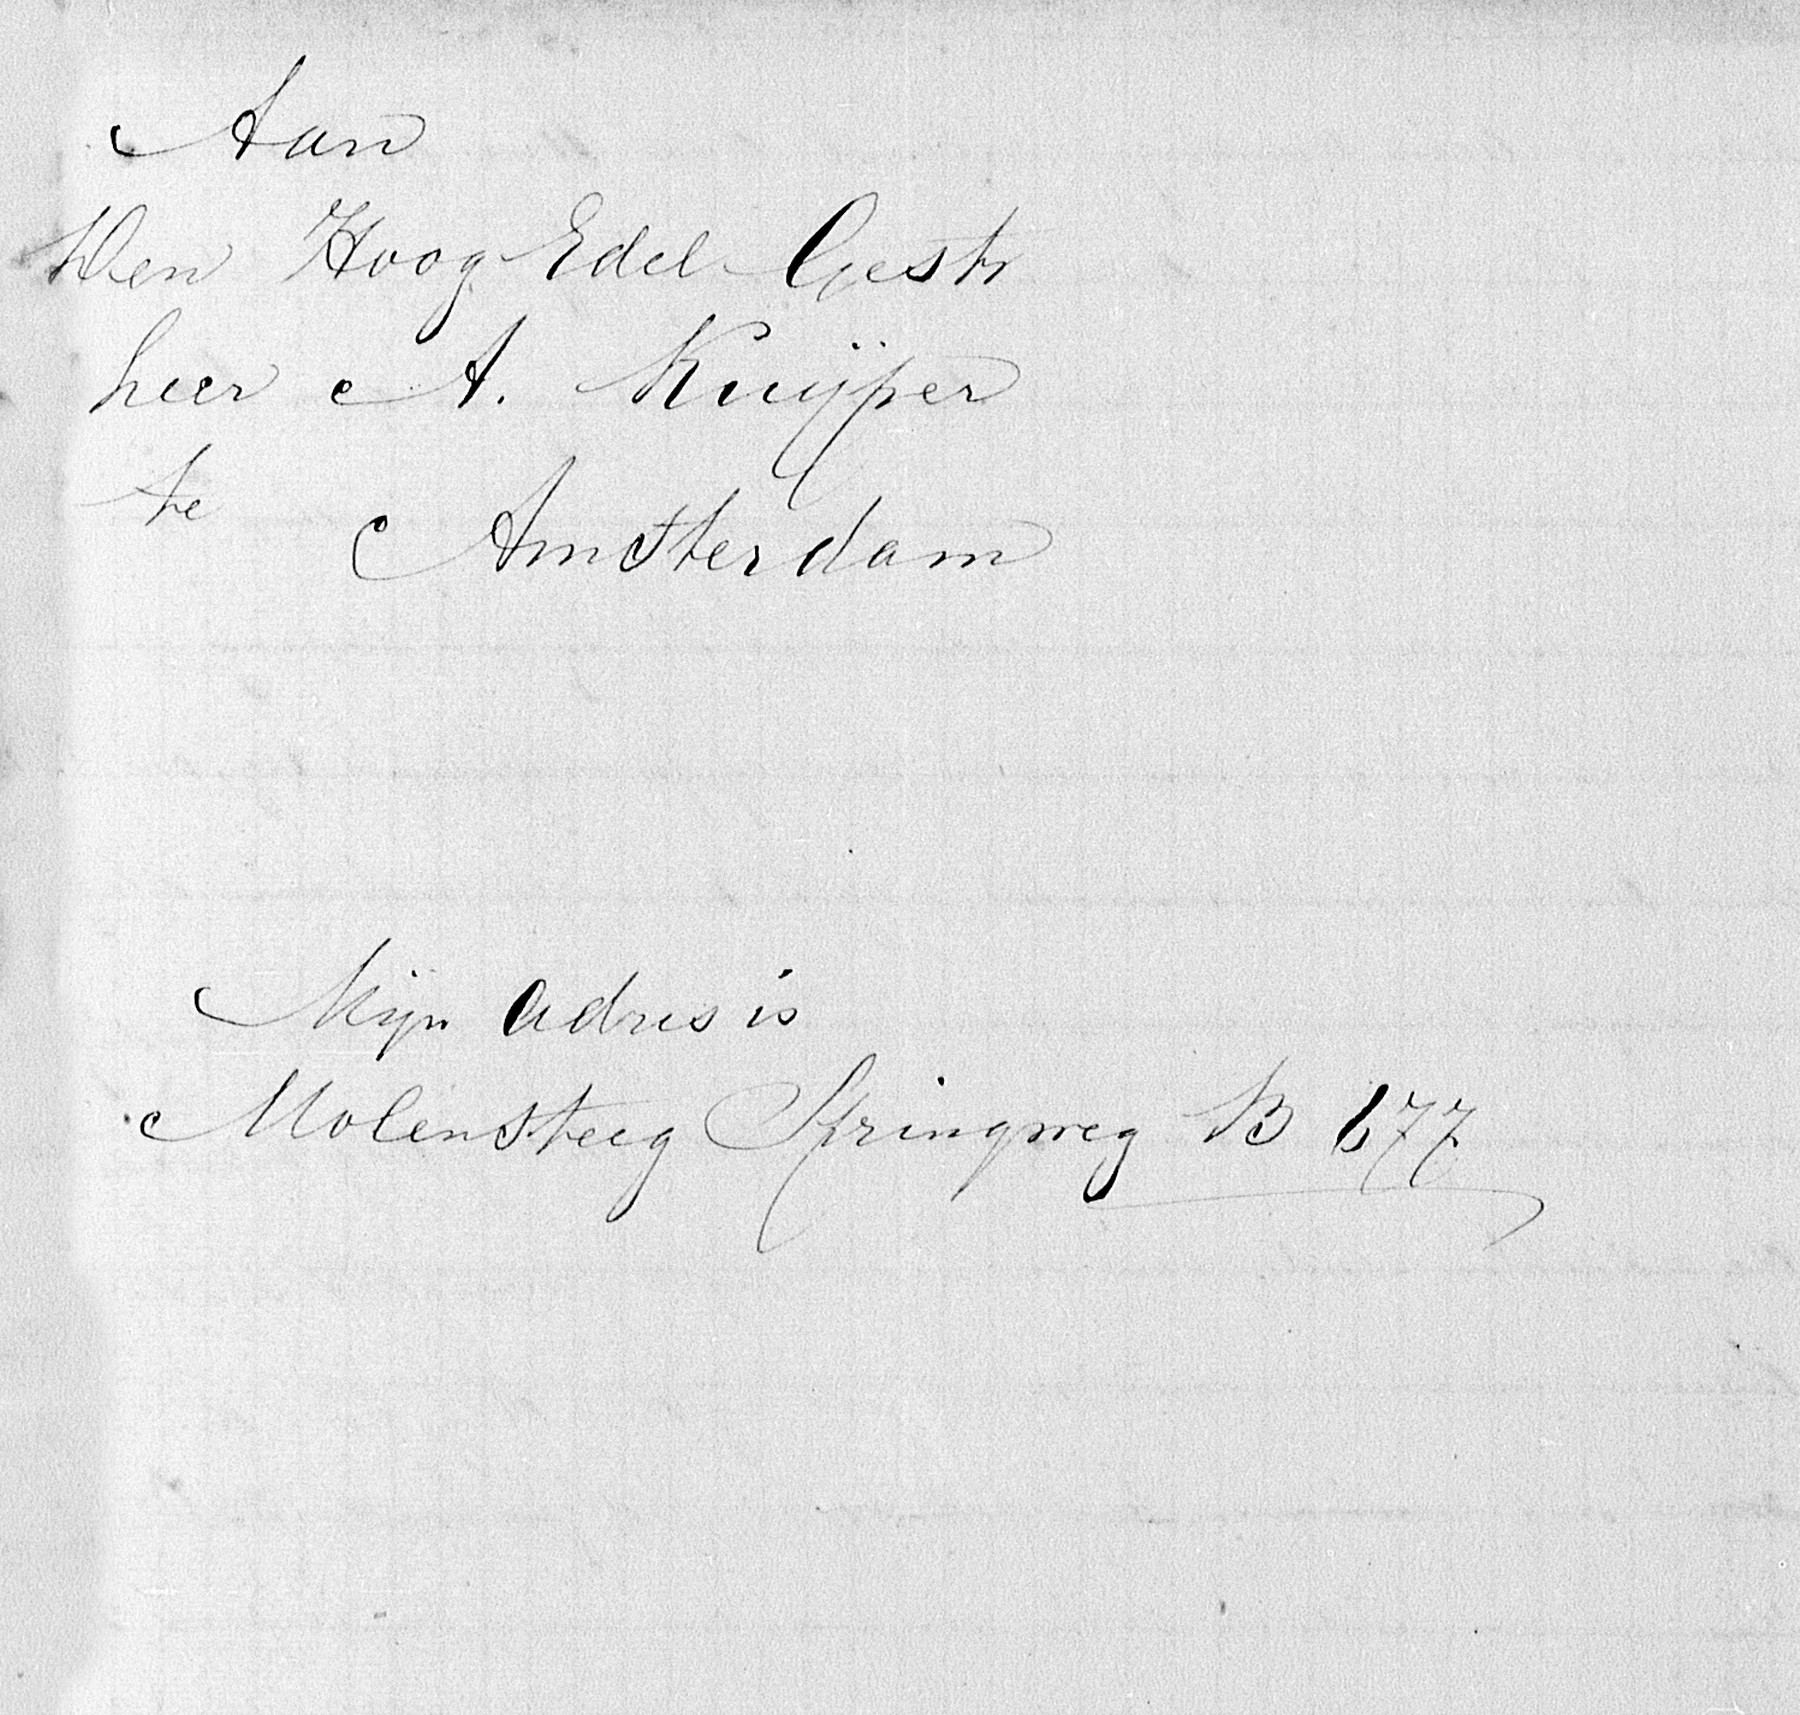 Aan
Den Hoog Edel Gestr
heer A. Kuijper
te
Amsterdam
Mijn adres is
Molensteeg Springweg B 677